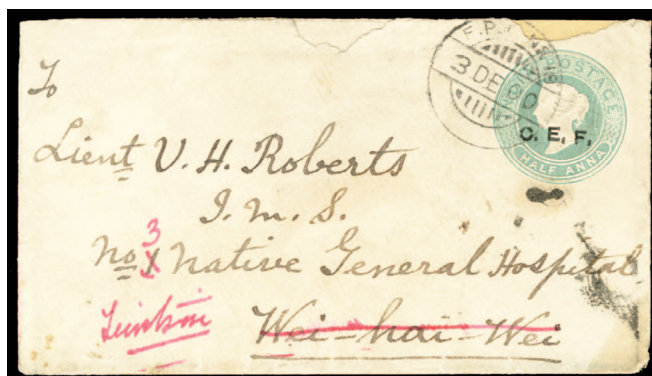 To
3 DE 00
POSTAGE
C. E. F.
HALF ANNA
Lieut V. H. Roberts
I. M. S.
3
No Native General Hospital
Wei-hai-Wei